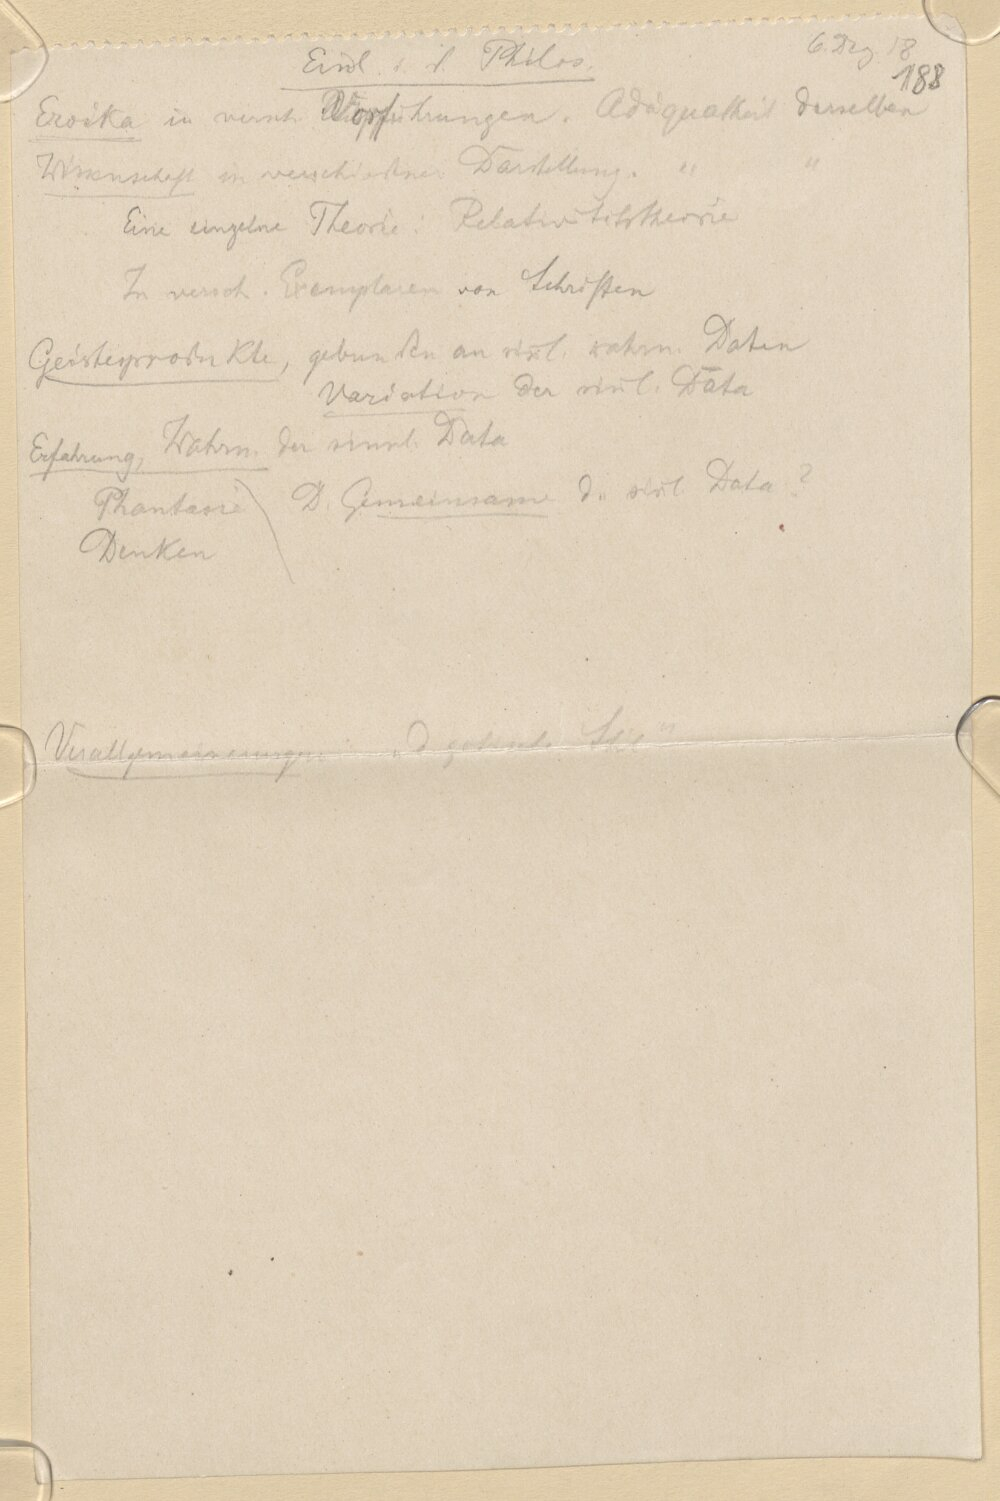 6. Dez. 18
188
Einl. i. d. Philos.
Eroika in versch. Vorführungen. Adäquatheit derselben
Wissenschaft in verschiedener Darstellung. " "
Eine einzelne Theorie: Relativitätstheorie
In versch. Exemplaren von Schriften
Geistesprodukte, gebunden an sinl. wahrn. Daten
Variation der sinl. Data
Erfahrung, Wahrn. der sinnl. Data
Phantasie D. Gemeinsame d. sinl Data?
Denken
Verallgemeinerungen